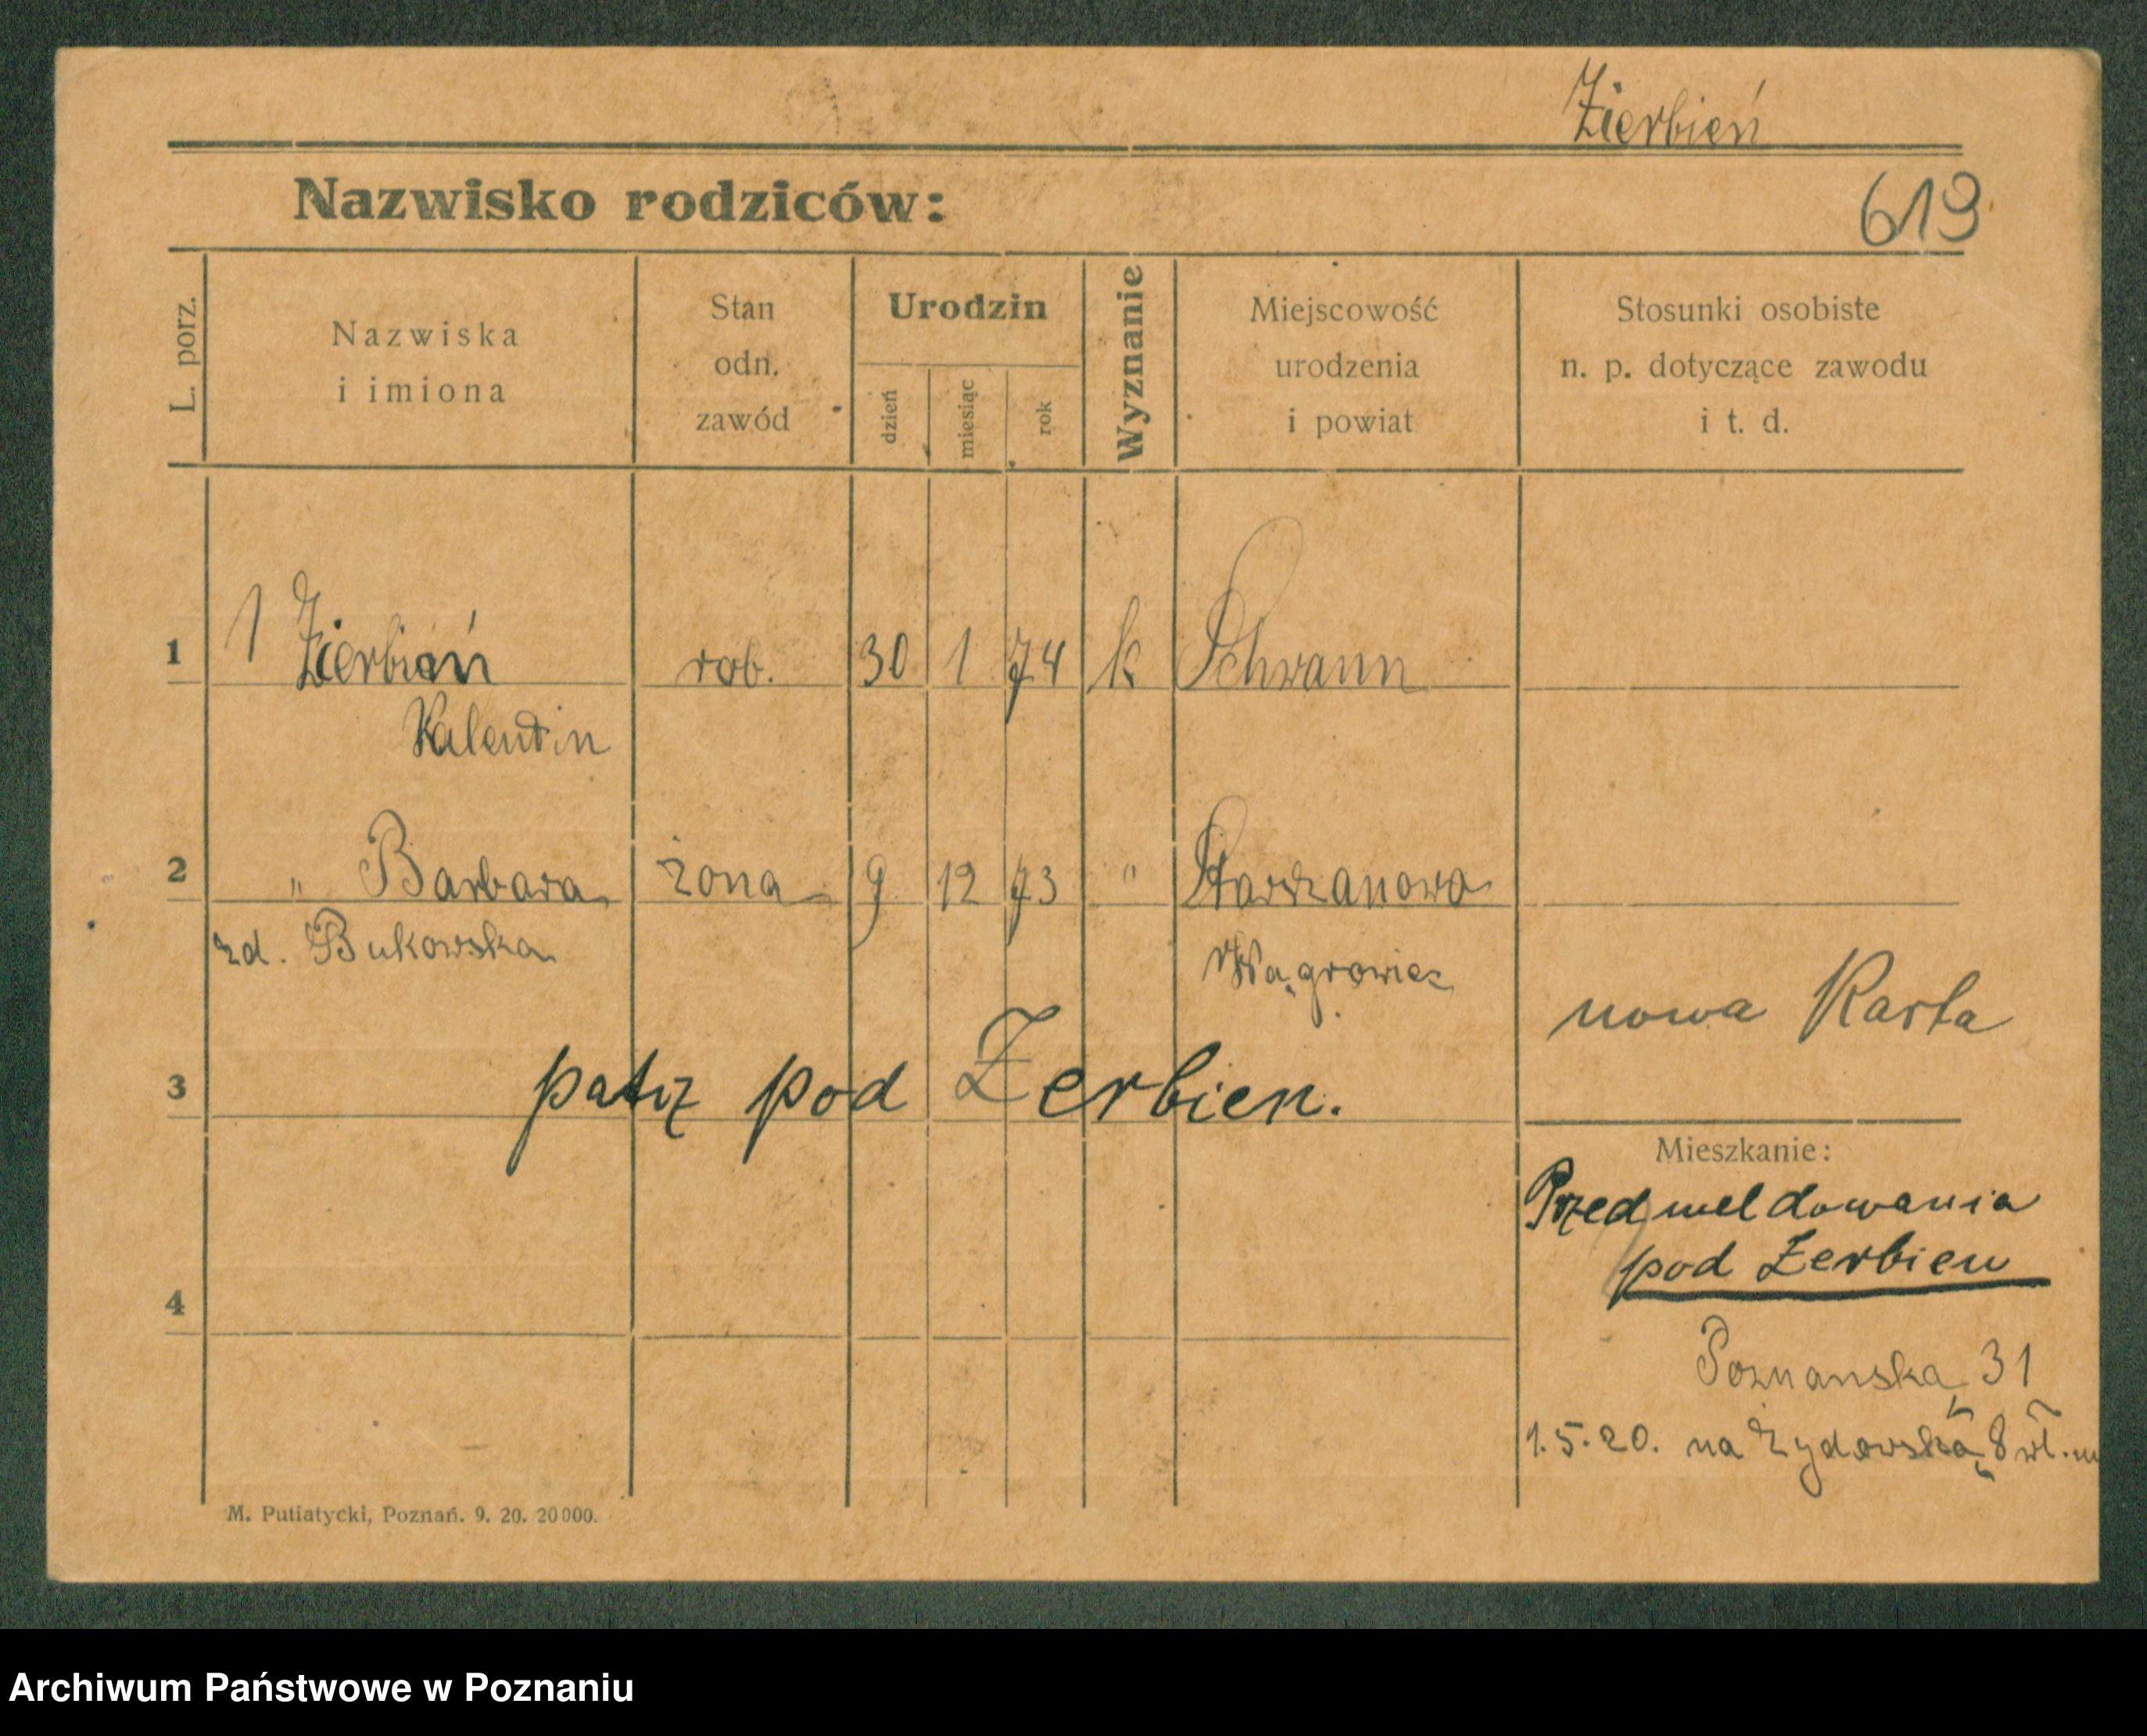 Zierbień
Nazwisko rodziców:
619
L. porz.
Nazwiska
i imiona
Stan
odn.
zawód
Urodzin
dzień
miesiąc
rok
Wyznanie
Miejscowość
urodzenia
i powiat
Stosunki osobiste
n. p. dotyczące zawodu
i t. d.
1 1 Zierbień rob. 30 1 74 k Schwann
Valentin
2 " Barbara żona 9 12 73 "
zd. Bukowska Wągrowiec
nowa Karta
3 patrz pod Zerbien.
Mieszkanie:
Przedmeldowania
pod Zerbien
4
Poznanska 31
1.5.20. na Zydowską 8 wł.
M. Putiatycki, Poznań. 9. 20. 20000.
Archiwum Państwowe w Poznaniu